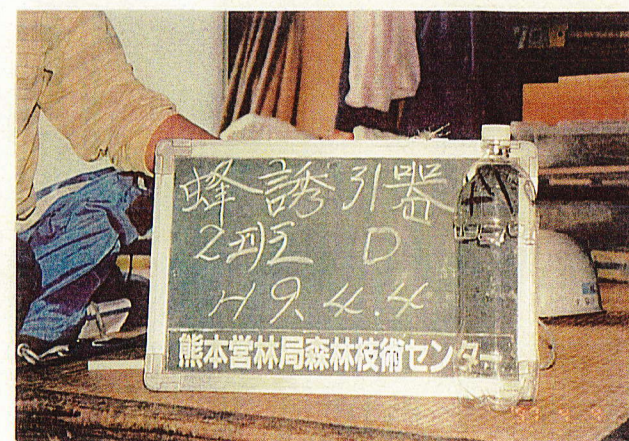 蜂誘引器
2班 D
H9.4.4
熊本営林局森林技術センター